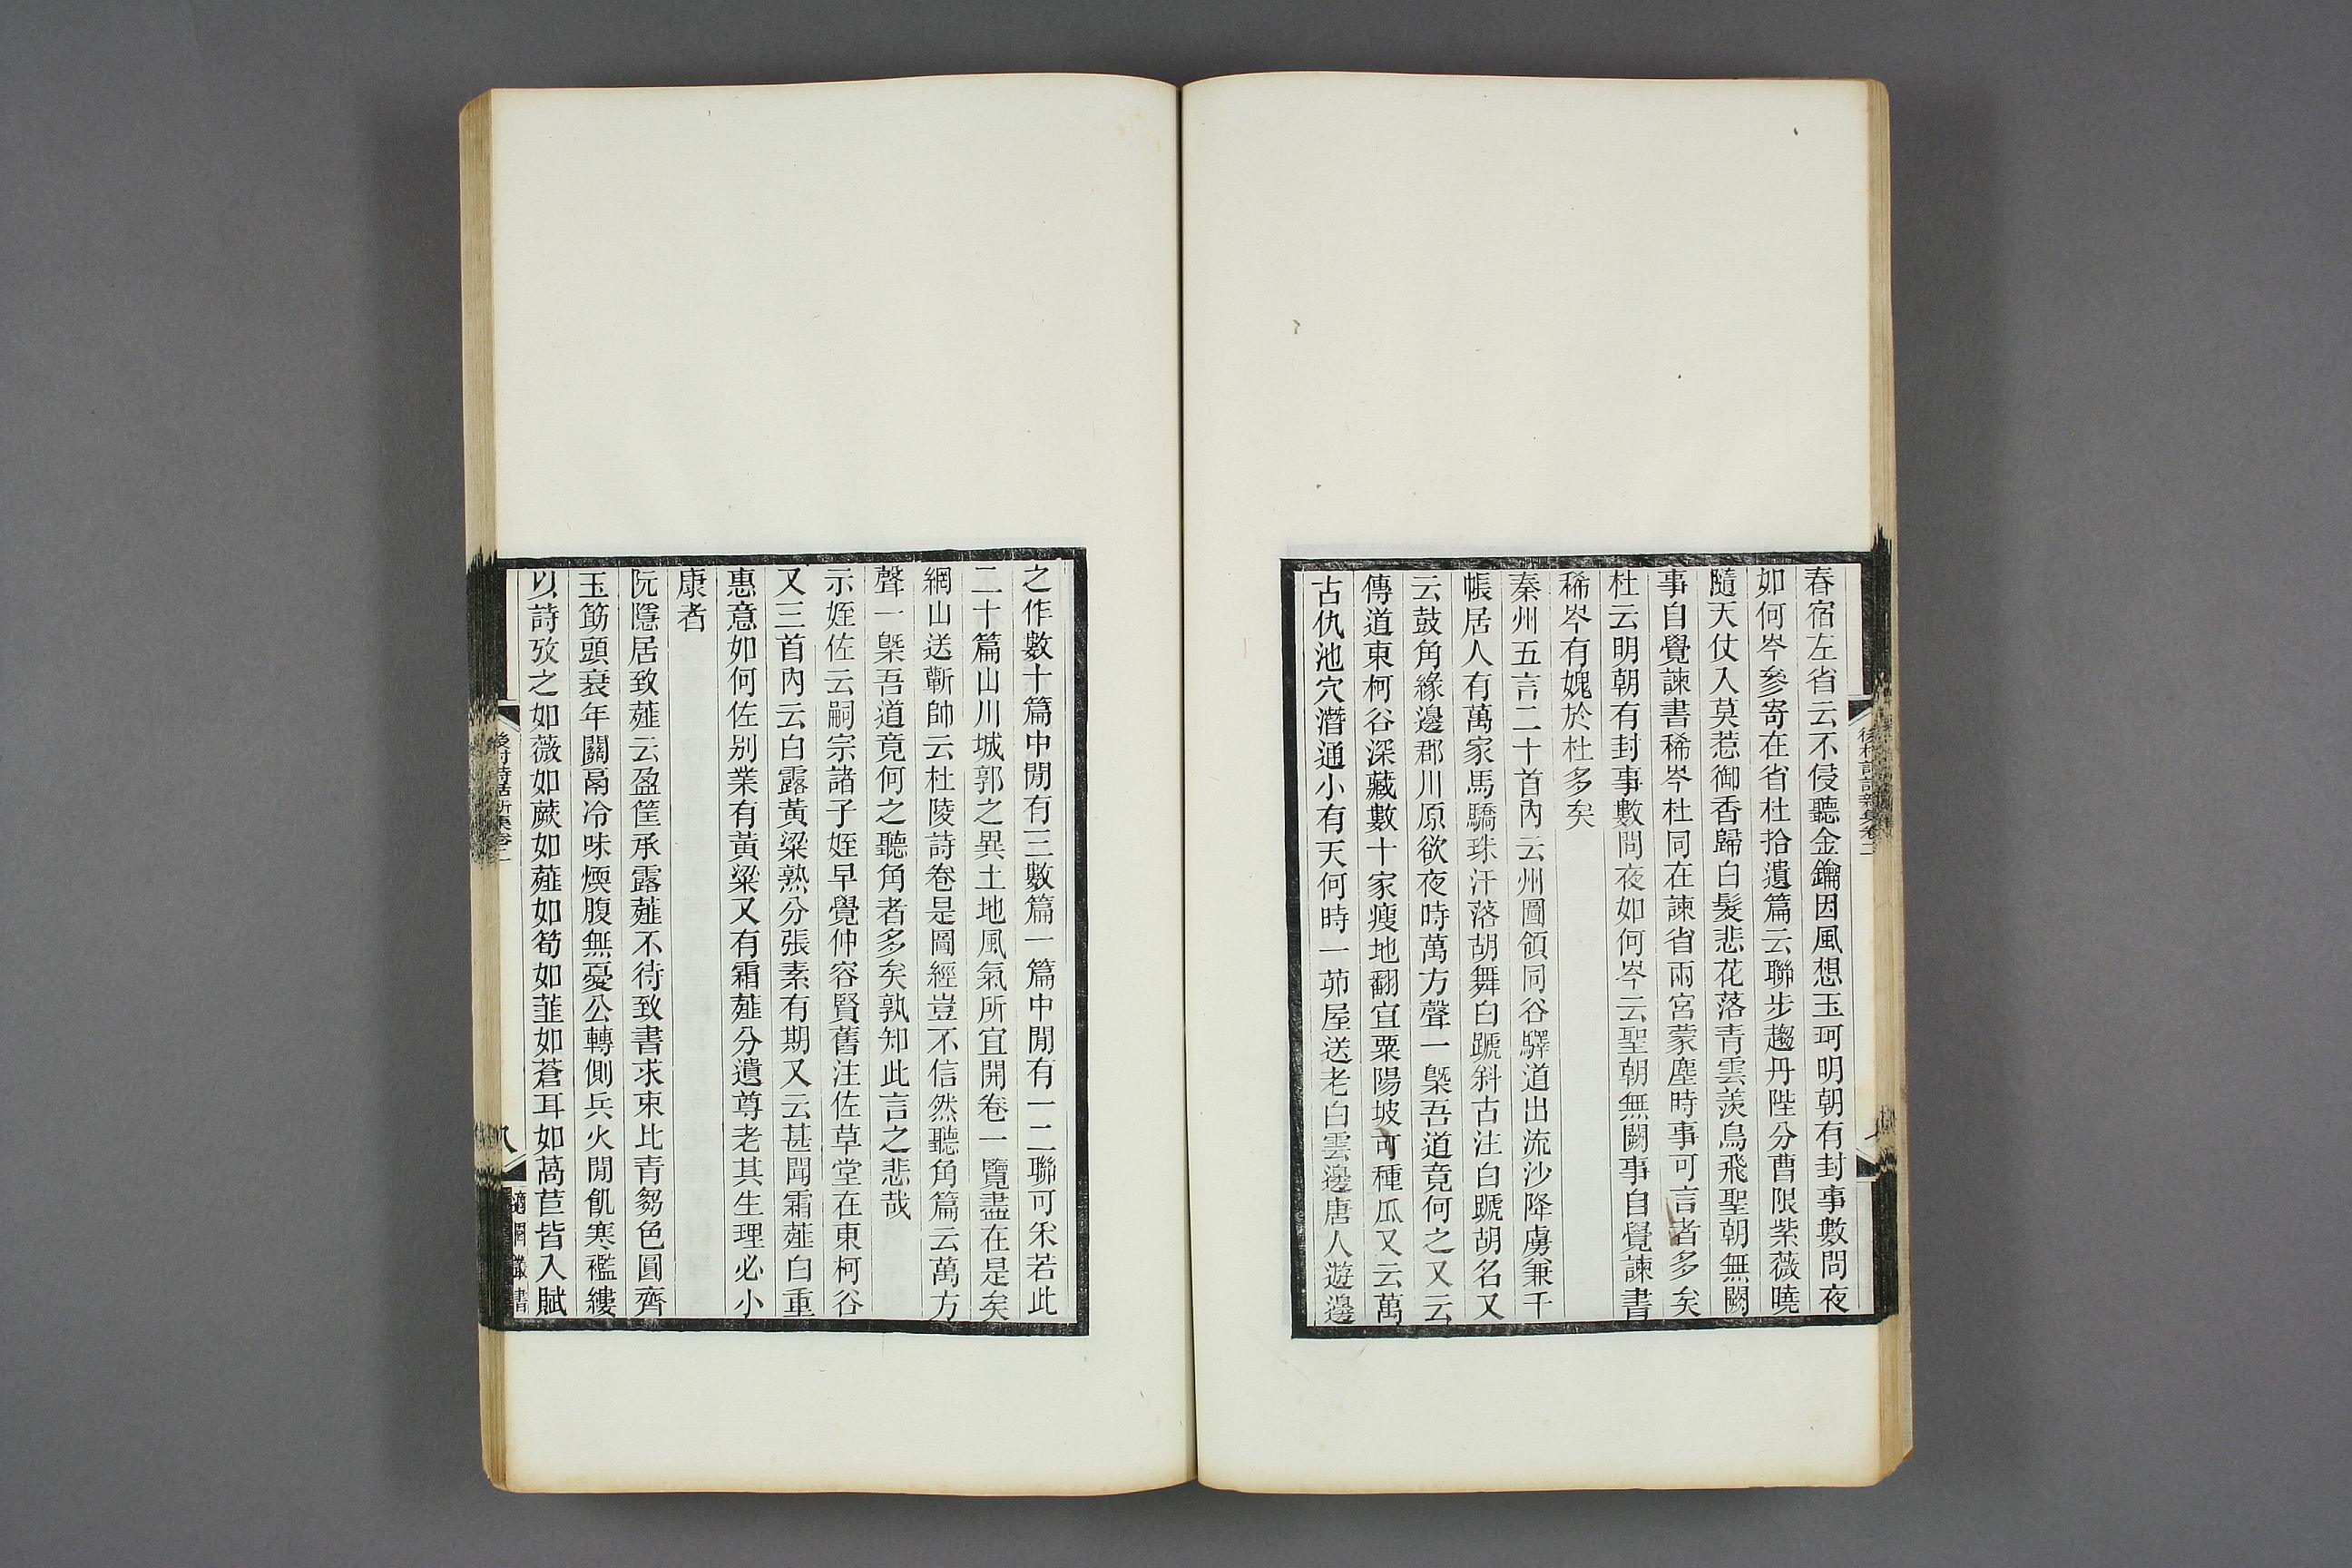 春宿左省云不侵聽金鑰因風想玉珂明朝有封事數問夜
如何岑參寄在省杜拾遺篇云聯步趨丹陛分曹限紫薇曉
隨天仗入莫惹御香歸白髮悲花落青雲羨鳥飛聖朝無闕
事自覺諫書稀岑杜同在諫省兩宮蒙塵時事可言者多矣
杜云明朝有封事數問夜如何岑云聖朝無闕事自覺諫書
稀岑有媿於杜多矣
秦州五言二十首內云州圖領同谷驛道出流沙降虜兼千
帳居人有萬家馬驕珠汗落胡舞白蹏斜古注白蹏胡名又
云鼓角緣邊郡川原欲夜時萬方聲一槩吾道竟何之又云
傳道東柯谷深藏數十家瘦地翻宜粟陽坡可種瓜又云萬
古仇池穴潛通小有天何時一茆屋送老白雲邊唐人遊邊
後村詩話新集卷二
之作數十篇中閒有三數篇一篇中閒有一二聯可采若此
二十篇山川城郭之異土地風氣所宜開卷一覽盡在是矣
網山送蘄帥云杜陵詩卷是圖經豈不信然聽角篇云萬方
聲一槩吾道竟何之聽角者多矣孰知此言之悲哉
示姪佐云嗣宗諸子姪早覺仲容賢舊注佐草堂在東柯谷
又三首內云白露黃粱熟分張素有期又云甚聞霜薤白重
惠意如何佐別業有黃粱又有霜薤分遺尊老其生理必小
康者
阮隱居致薤云盈筐承露薤不待致書求束比青芻色圓齊
玉筯頭衰年關鬲冷味煗腹無憂公轉側兵火閒飢寒襤縷
以詩攷之如薇如蕨如薤如筍如韮如蒼耳如萵苣皆入賦
後村詩話新集卷二
八